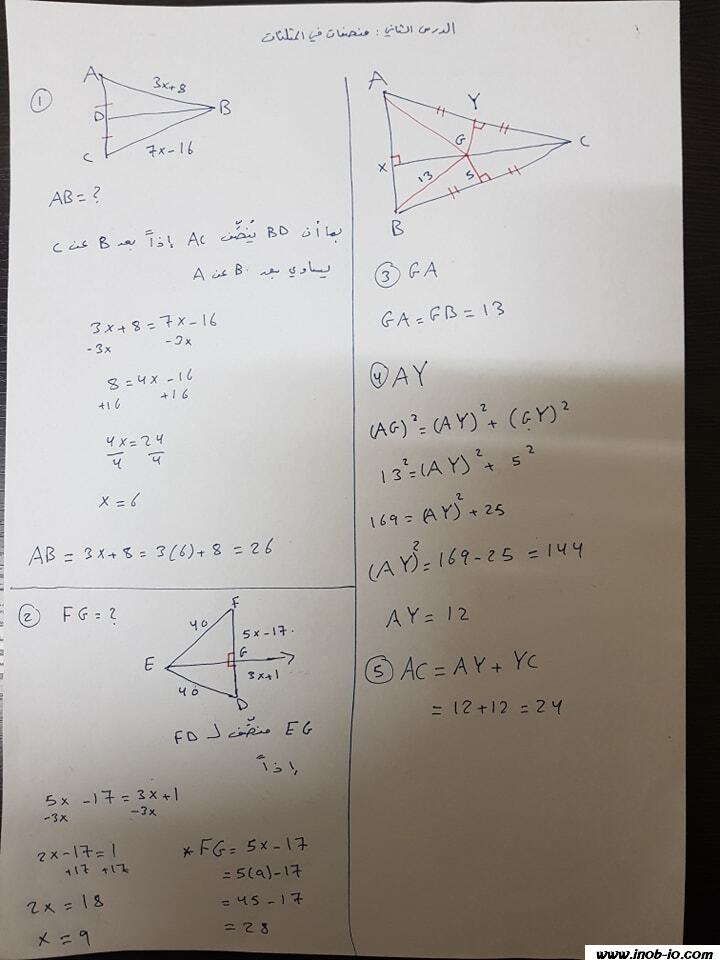 الدرس الثاني : منصفات في المثلثات
١
①
A
3x+8
D
B
C
7x-16
AB = ?
بما أن BD يُنصِّف AC إذاً بعد B عن C
يساوي بعد B عن A
3x+8 = 7x-16
-3x -3x
8 = 4x -16
+16 +16
4x = 24
4 4
x = 6
AB = 3x+8 = 3(6)+8 = 26
② FG = ?
F
40
5x-17
E
G
3x+1
40
D
EG منصِّف لـ FD
إذاً
5x -17 = 3x+1
-3x -3x
2x-17 = 1
+17 +17
2x = 18
x = 9
* FG = 5x-17
= 5(9)-17
= 45 -17
= 28
A
Y
G
C
X
13
5
B
③ GA
GA = GB = 13
④ AY
(AG)² = (AY)² + (GY)²
13² = (AY)² + 5²
169 = (AY)² + 25
(AY)² = 169-25 = 144
AY = 12
⑤ AC = AY + YC
= 12+12 = 24
www.inob-io.com